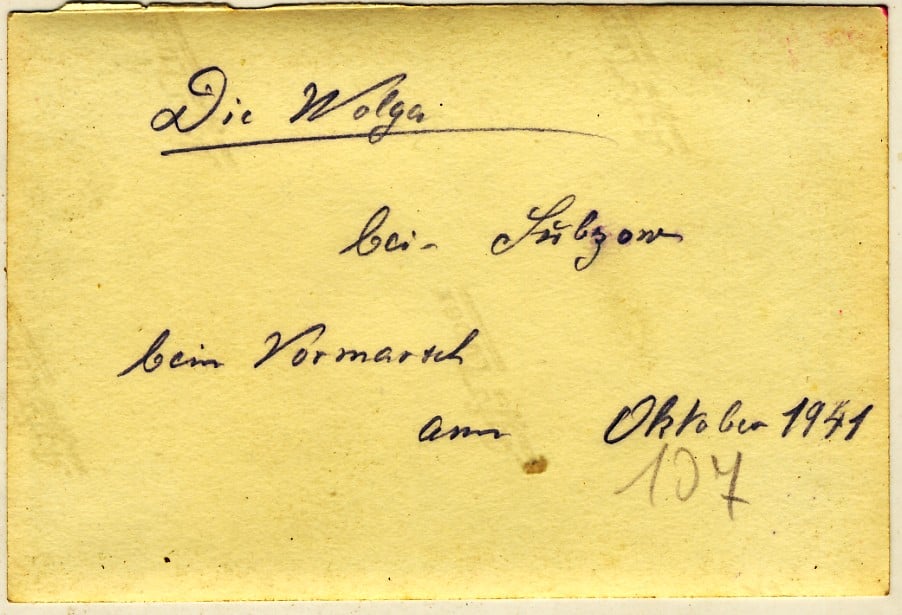 Die Wolga
bei Subzow
beim Vormarsch
am Oktober 1941
107